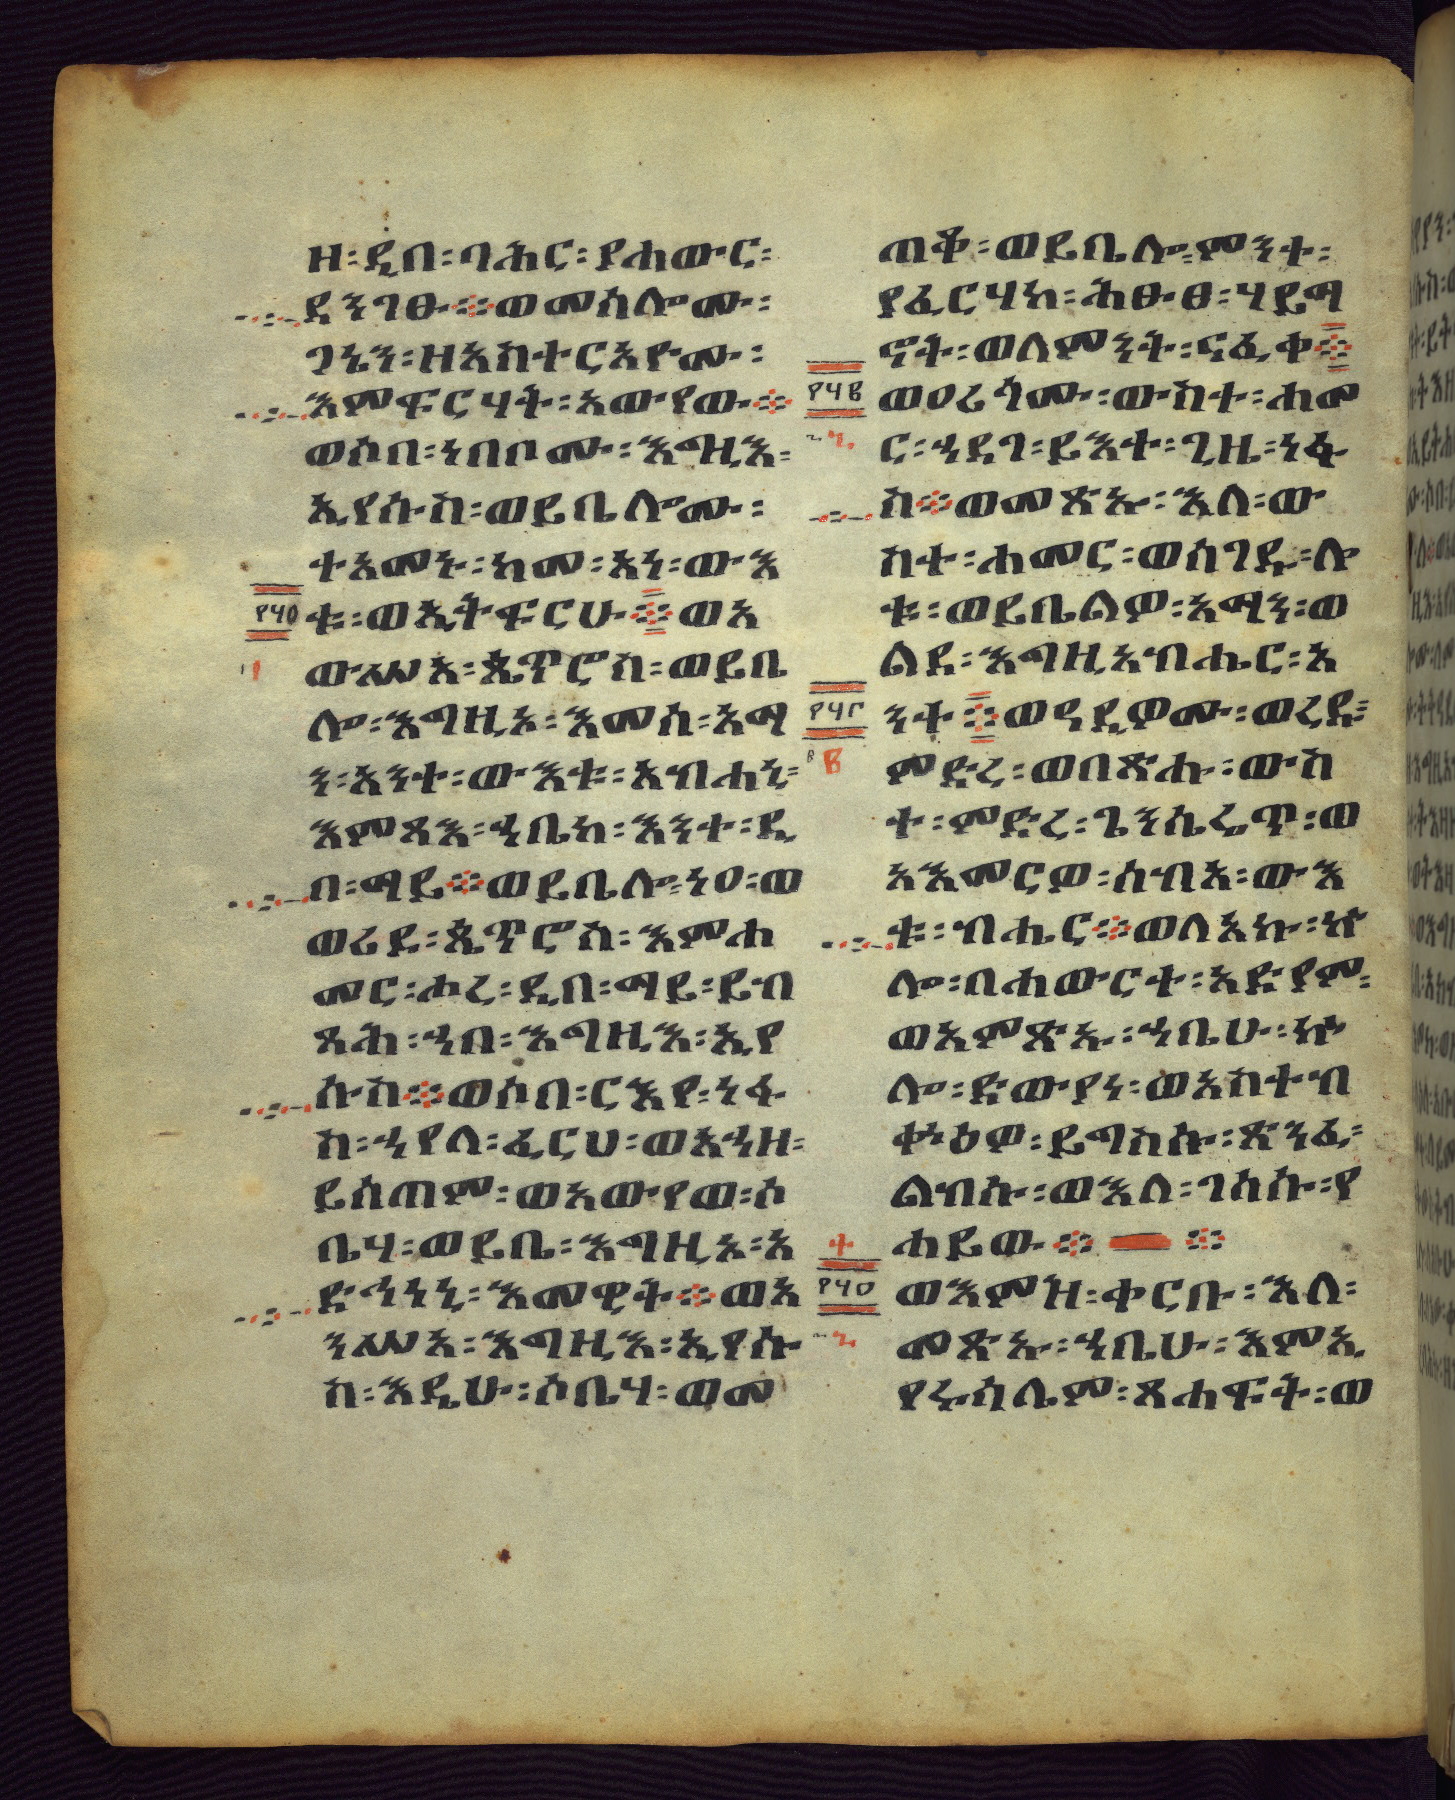 ዘ፡ዲበ፡ባሕር፡ያሐውር፡
ደንገፁ፨ወመሰሎሙ፡
ጋኔን፡ዘአስተርአዮሙ፡
እምፍርሃት፡አውየው፨
ወሶበ፡ነበቦሙ፡እግዚእ፡
ኢየሱስ፡ወይቤሎሙ፡
ተአመኑ፡ከመ፡አነ፡ውእ
፻፶፩ ቱ፡ወኢትፍርሁ፨ወአ
፩ ውሥአ፡ጴጥሮስ፡ወይቤ
ሎ፡እግዚኦ፡እመሰ፡አማ
ን፡አንተ፡ውእቱ፡አብሐኒ፡
እምጻእ፡ኀቤከ፡እንተ፡ዲ
በ፡ማይ፨ወይቤሎ፡ነዐ፡ወ
ወሪዶ፡ጴጥሮስ፡እምሐ
መር፡ሖረ፡ዲበ፡ማይ፡ይብ
ጻሕ፡ኀበ፡እግዚእ፡ኢየ
ሱስ፨ወሶበ፡ርእየ፡ነፋ
ስ፡ኀየለ፡ፈርሀ፡ወአኀዘ፡
ይሰጠም፡ወአውየወ፡ሶ
ቤሃ፡ወይቤ፡እግዚኦ፡አ
ድኅነኒ፡እመዊት፨ወአ
ንሥአ፡እግዚእ፡ኢየሱ
ስ፡እዴሁ፡ሶቤሃ፡ወመ
ጠቆ፡ወይቤሎ፡ምንተ፡
ያፈርሃከ፡ሕፁፀ፡ሃይማ
ኖት፡ወለምንት፡ናፈቀ፨
ወዐሪጎሙ፡ውስተ፡ሐመ
ር፡ኀደገ፡ይእተ፡ጊዜ፡ነፋ
ስ፨ወመጽኡ፡እለ፡ው
ስተ፡ሐመር፡ወሰገዱ፡ሎ
ቱ፡ወይቤልዎ፡አማን፡ወ
ልደ፡እግዚአብሔር፡አ
ንተ፨ወዓዲዎሙ፡ወረዱ፡
ምድረ፡ወበጽሑ፡ውስ
ተ፡ምድረ፡ጌንሴሬጥ፡ወ
አእመርዎ፡ሰብአ፡ውእ
ቱ፡ብሔር፨ወለአኩ፡ኵ
ሎ፡በሐውርተ፡አድያም፡
ወአምጽኡ፡ኀቤሁ፡ኵ
ሎ፡ድውያነ፡ወአስተብ
ቍዕዎ፡ይግስሱ፡ጽንፈ፡
ልብሱ፡ወእለ፡ገሰሱ፡የ
ሐይው፨ ፨
ወእምዝ፡ቀርቡ፡እለ፡
መጽኡ፡ኀቤሁ፡እምኢ
የሩሳሌም፡ጸሐፍት፡ወ